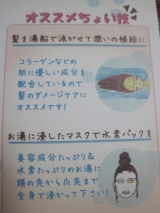 オススメちょい技
髪を湯船で泳がせて潤いの補給に
コラーゲンなどの
肌に優しい成分を
配合しているので
髪のダメージケアに
オススメです!
お湯に浸したマスクで水素パックを
美容成分たっぷり&
水素たっぷりのお湯に
顔の先から爪先まで
全身で浸かって下さい!